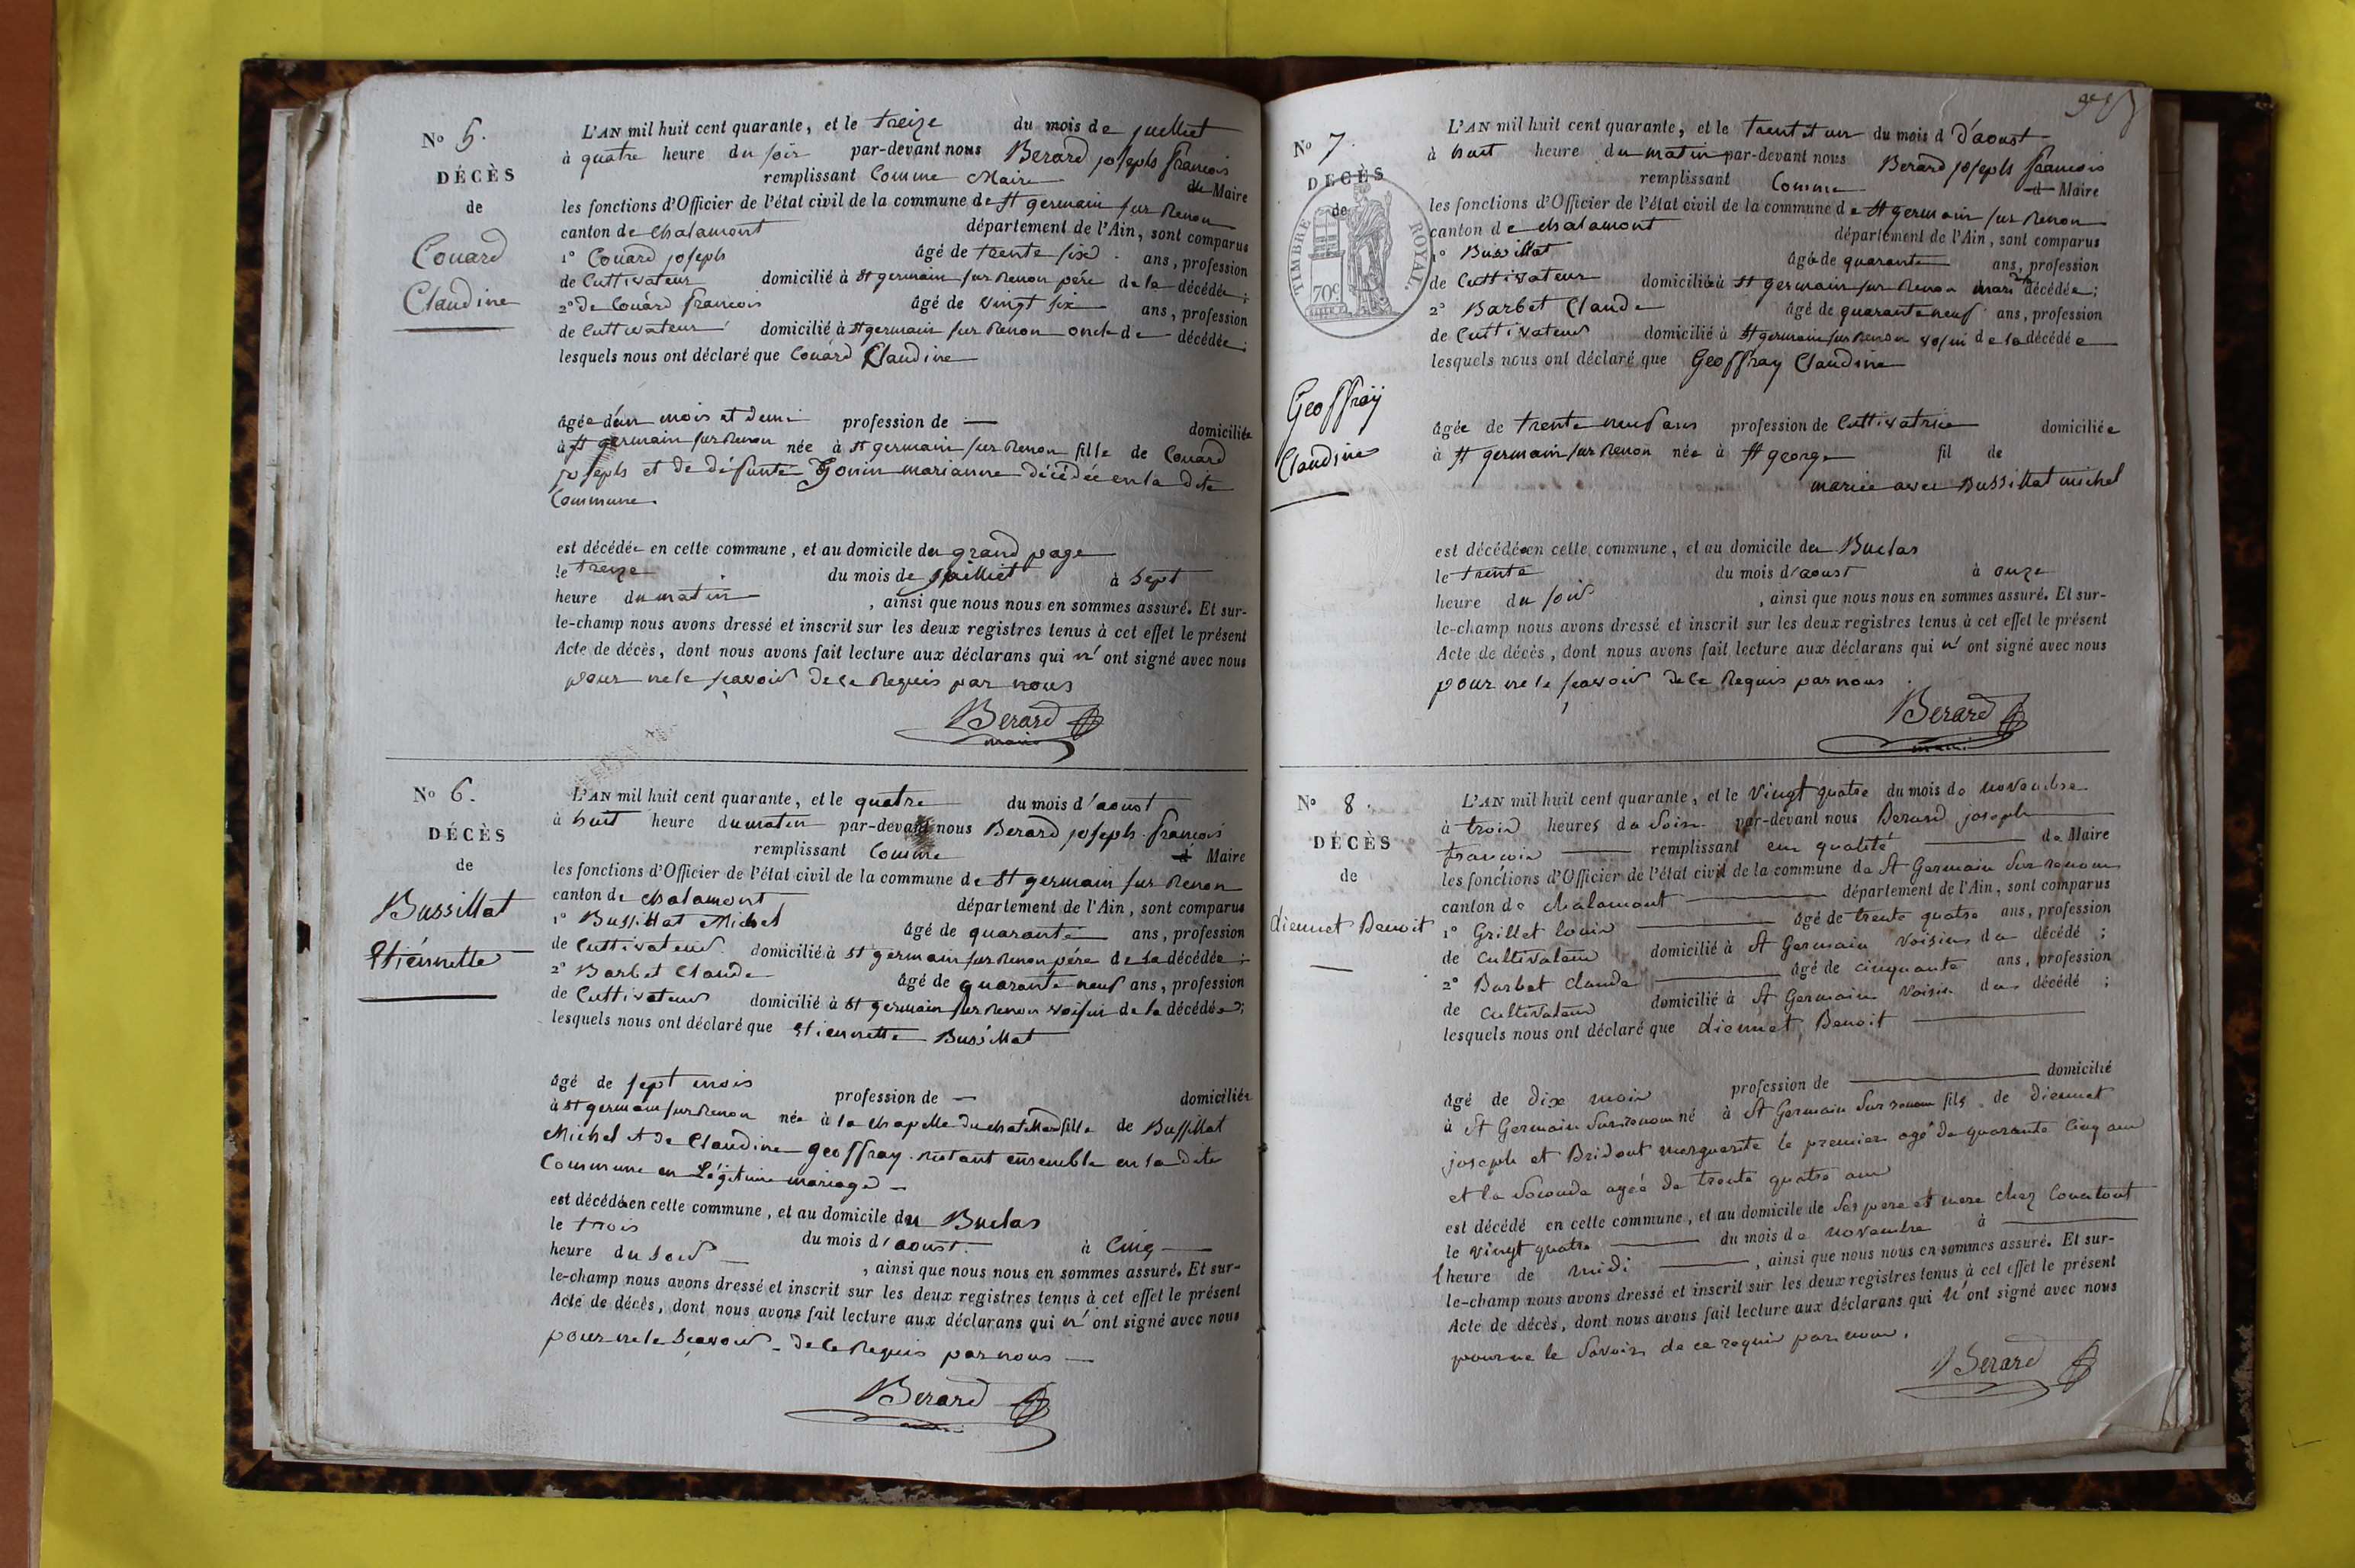 No 5.
DÉCÈS
de
Couard
Claudine
L'AN mil huit cent quarante, et le treize du mois de juelliet
à quatre heure du soir par-devant nous Berard joseph francois
remplissant Comme Maire de Maire
les fonctions d'Officier de l'état civil de la commune de St germain sur Renon
canton de chalamont département de l'Ain, sont comparus
1° Couard joseph âgé de trente six ans, profession
de Cuttivateur domicilié à St germain sur Renon père de la décédée ;
2° de Couard francois âgé de vingt six ans, profession
de Cuttivateur domicilié à St germain sur Renon oncle de décédée ;
lesquels nous ont déclaré que Couard Claudine
âgée d'un mois et demi profession de — domiciliée
à St germain sur Renon née à St germain sur Renon fille de Couard
joseph et de défunte Gonin marianne décédée en la dite
Commune.
est décédée en cette commune, et au domicile du grand page
le treize du mois de juilliet à sept
heure du matin , ainsi que nous nous en sommes assuré. Et sur-
le-champ nous avons dressé et inscrit sur les deux registres tenus à cet effet le présent
Acte de décès, dont nous avons fait lecture aux déclarans qui n' ont signé avec nous
pour ne le sçavoir de ce Requis par nous
Berard
maire
No 6.
DÉCÈS
de
Bussillat
Etiénnette
L'AN mil huit cent quarante, et le quatre du mois d'aoust
à huit heure du matin par-devant nous Berard joseph francois
remplissant Comme d Maire
les fonctions d'Officier de l'état civil de la commune de St germain sur Renon
canton de chalamont département de l'Ain, sont comparus
1° Bussillat Michel âgé de quarante ans, profession
de Cuttivateur domicilié à St germain sur Renon père de la décédée ;
2° Barbet Claude âgé de quarante neuf ans, profession
de Cuttivateur domicilié à St germain sur Renon voisin de la décédée ;
lesquels nous ont déclaré que Etiennette Bussillat
âgé de sept mois profession de — domiciliée
à St germain sur Renon née à la chapelle du chatellard fille de Bussillat
Michel et de Claudine geoffray. Restant ensemble en la dite
Commune en Légitime mariage —
est décédée en cette commune, et au domicile du Buclas
le trois du mois d'aoust. à Cinq
heure du soir , ainsi que nous nous en sommes assuré. Et sur-
le-champ nous avons dressé et inscrit sur les deux registres tenus à cet effet le présent
Acte de décès, dont nous avons fait lecture aux déclarans qui n' ont signé avec nous
pour ne le Sçavoir de ce Requis par nous —
Berard
No 7.
DÉCÈS
de
TIMBRE ROYAL.
70c
Geoffray
Claudine
L'AN mil huit cent quarante, et le trent et un du mois d D'aoust
à huit heure du matin par-devant nous Berard joseph francois
remplissant Comme d Maire
les fonctions d'Officier de l'état civil de la commune de St germain sur Renon
canton de chalamont département de l'Ain, sont comparus
1° Bussillat âgé de quarante ans, profession
de Cuttivateur domicilié à St germain sur Renon mari de décédée ;
2° Barbet Claude âgé de quarante neuf ans, profession
de Cuttivateur domicilié à St germain sur Renon voisin de la décédée
lesquels nous ont déclaré que Geoffray Claudine
âgée de trente neuf ans profession de Cuttivatrice domiciliée
à St germain sur Renon née à St george fil de
mariée avec Bussillat michel
est décédée en cette commune, et au domicile du Buclas
le trente du mois d'aoust à onze
heure du soir , ainsi que nous nous en sommes assuré. Et sur-
le-champ nous avons dressé et inscrit sur les deux registres tenus à cet effet le présent
Acte de décès, dont nous avons fait lecture aux déclarans qui n' ont signé avec nous
pour ne le sçavoir de ce Requis par nous
Berard
maire
No 8.
DÉCÈS
de
diennet Benoit
L'AN mil huit cent quarante, et le vingt quatre du mois de novembre
à trois heures du Soir par-devant nous Berard joseph
francois remplissant en qualité de Maire
les fonctions d'Officier de l'état civil de la commune de St Germain Sur renom
canton de chalamont département de l'Ain, sont comparus
1° Grillet louis âgé de trente quatre ans, profession
de cultivateur domicilié à St Germain voisin du décédé ;
2° Barbet claude âgé de cinquante ans, profession
de cultivateur domicilié à St Germain voisin du décédé ;
lesquels nous ont déclaré que diennet Benoit
âgé de dix mois profession de domicilié
à St Germain Sur renom né à St Germain Sur renom fils de diennet
joseph et Bridout marguerite le premier agé de quarante cinq ans
et la Seconde agée de trente quatre ans
est décédé en cette commune, et au domicile de Ses pere et mere chez
le vingt quatre du mois de novembre à
1 heure de midi , ainsi que nous nous en sommes assuré. Et sur-
le-champ nous avons dressé et inscrit sur les deux registres tenus à cet effet le présent
Acte de décès, dont nous avons fait lecture aux déclarans qui n' ont signé avec nous
pour ne le Savoir de ce requis par nous.
Berard